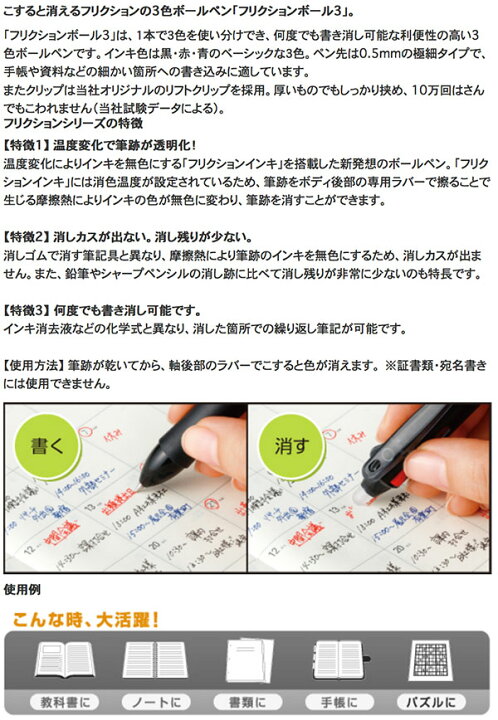 こすると消えるフリクションの3色ボールペン｢フリクションボール3｣。
｢フリクションボール3｣は、1本で3色を使い分けでき、何度でも書き消し可能な利便性の高い3
色ボールペンです。インキ色は黒･赤･青のベーシックな3色。ペン先は0.5mmの極細タイプで、
手帳や資料などの細かい箇所への書き込みに適しています。
またクリップは当社オリジナルのリフトクリップを採用。厚いものでもしっかり挟め、10万回はさん
でもこわれません（当社試験データによる）。
フリクションシリーズの特徴
【特徴1】 温度変化で筆跡が透明化！
温度変化によりインキを無色にする｢フリクションインキ｣を搭載した新発想のボールペン。｢フリ
クションインキ｣には消色温度が設定されているため、筆跡をボディ後部の専用ラバーで擦ることで
生じる摩擦熱によりインキの色が無色に変わり、筆跡を消すことができます。
【特徴2】 消しカスが出ない。消し残りが少ない。
消しゴムで消す筆記具と異なり、摩擦熱により筆跡のインキを無色にするため、消しカスが出ま
せん。また、鉛筆やシャープペンシルの消し跡に比べて消し残りが非常に少ないのも特長です。
【特徴3】 何度でも書き消し可能です。
インキ消去液などの化学式と異なり、消した箇所での繰り返し筆記が可能です。
【使用方法】 筆跡が乾いてから、軸後部のラバーでこすると色が消えます。 ※証書類･宛名書き
には使用できません。
書く
消す
使用例
こんな時、大活躍！
教科書に
ノートに
書類に
手帳に
パズルに